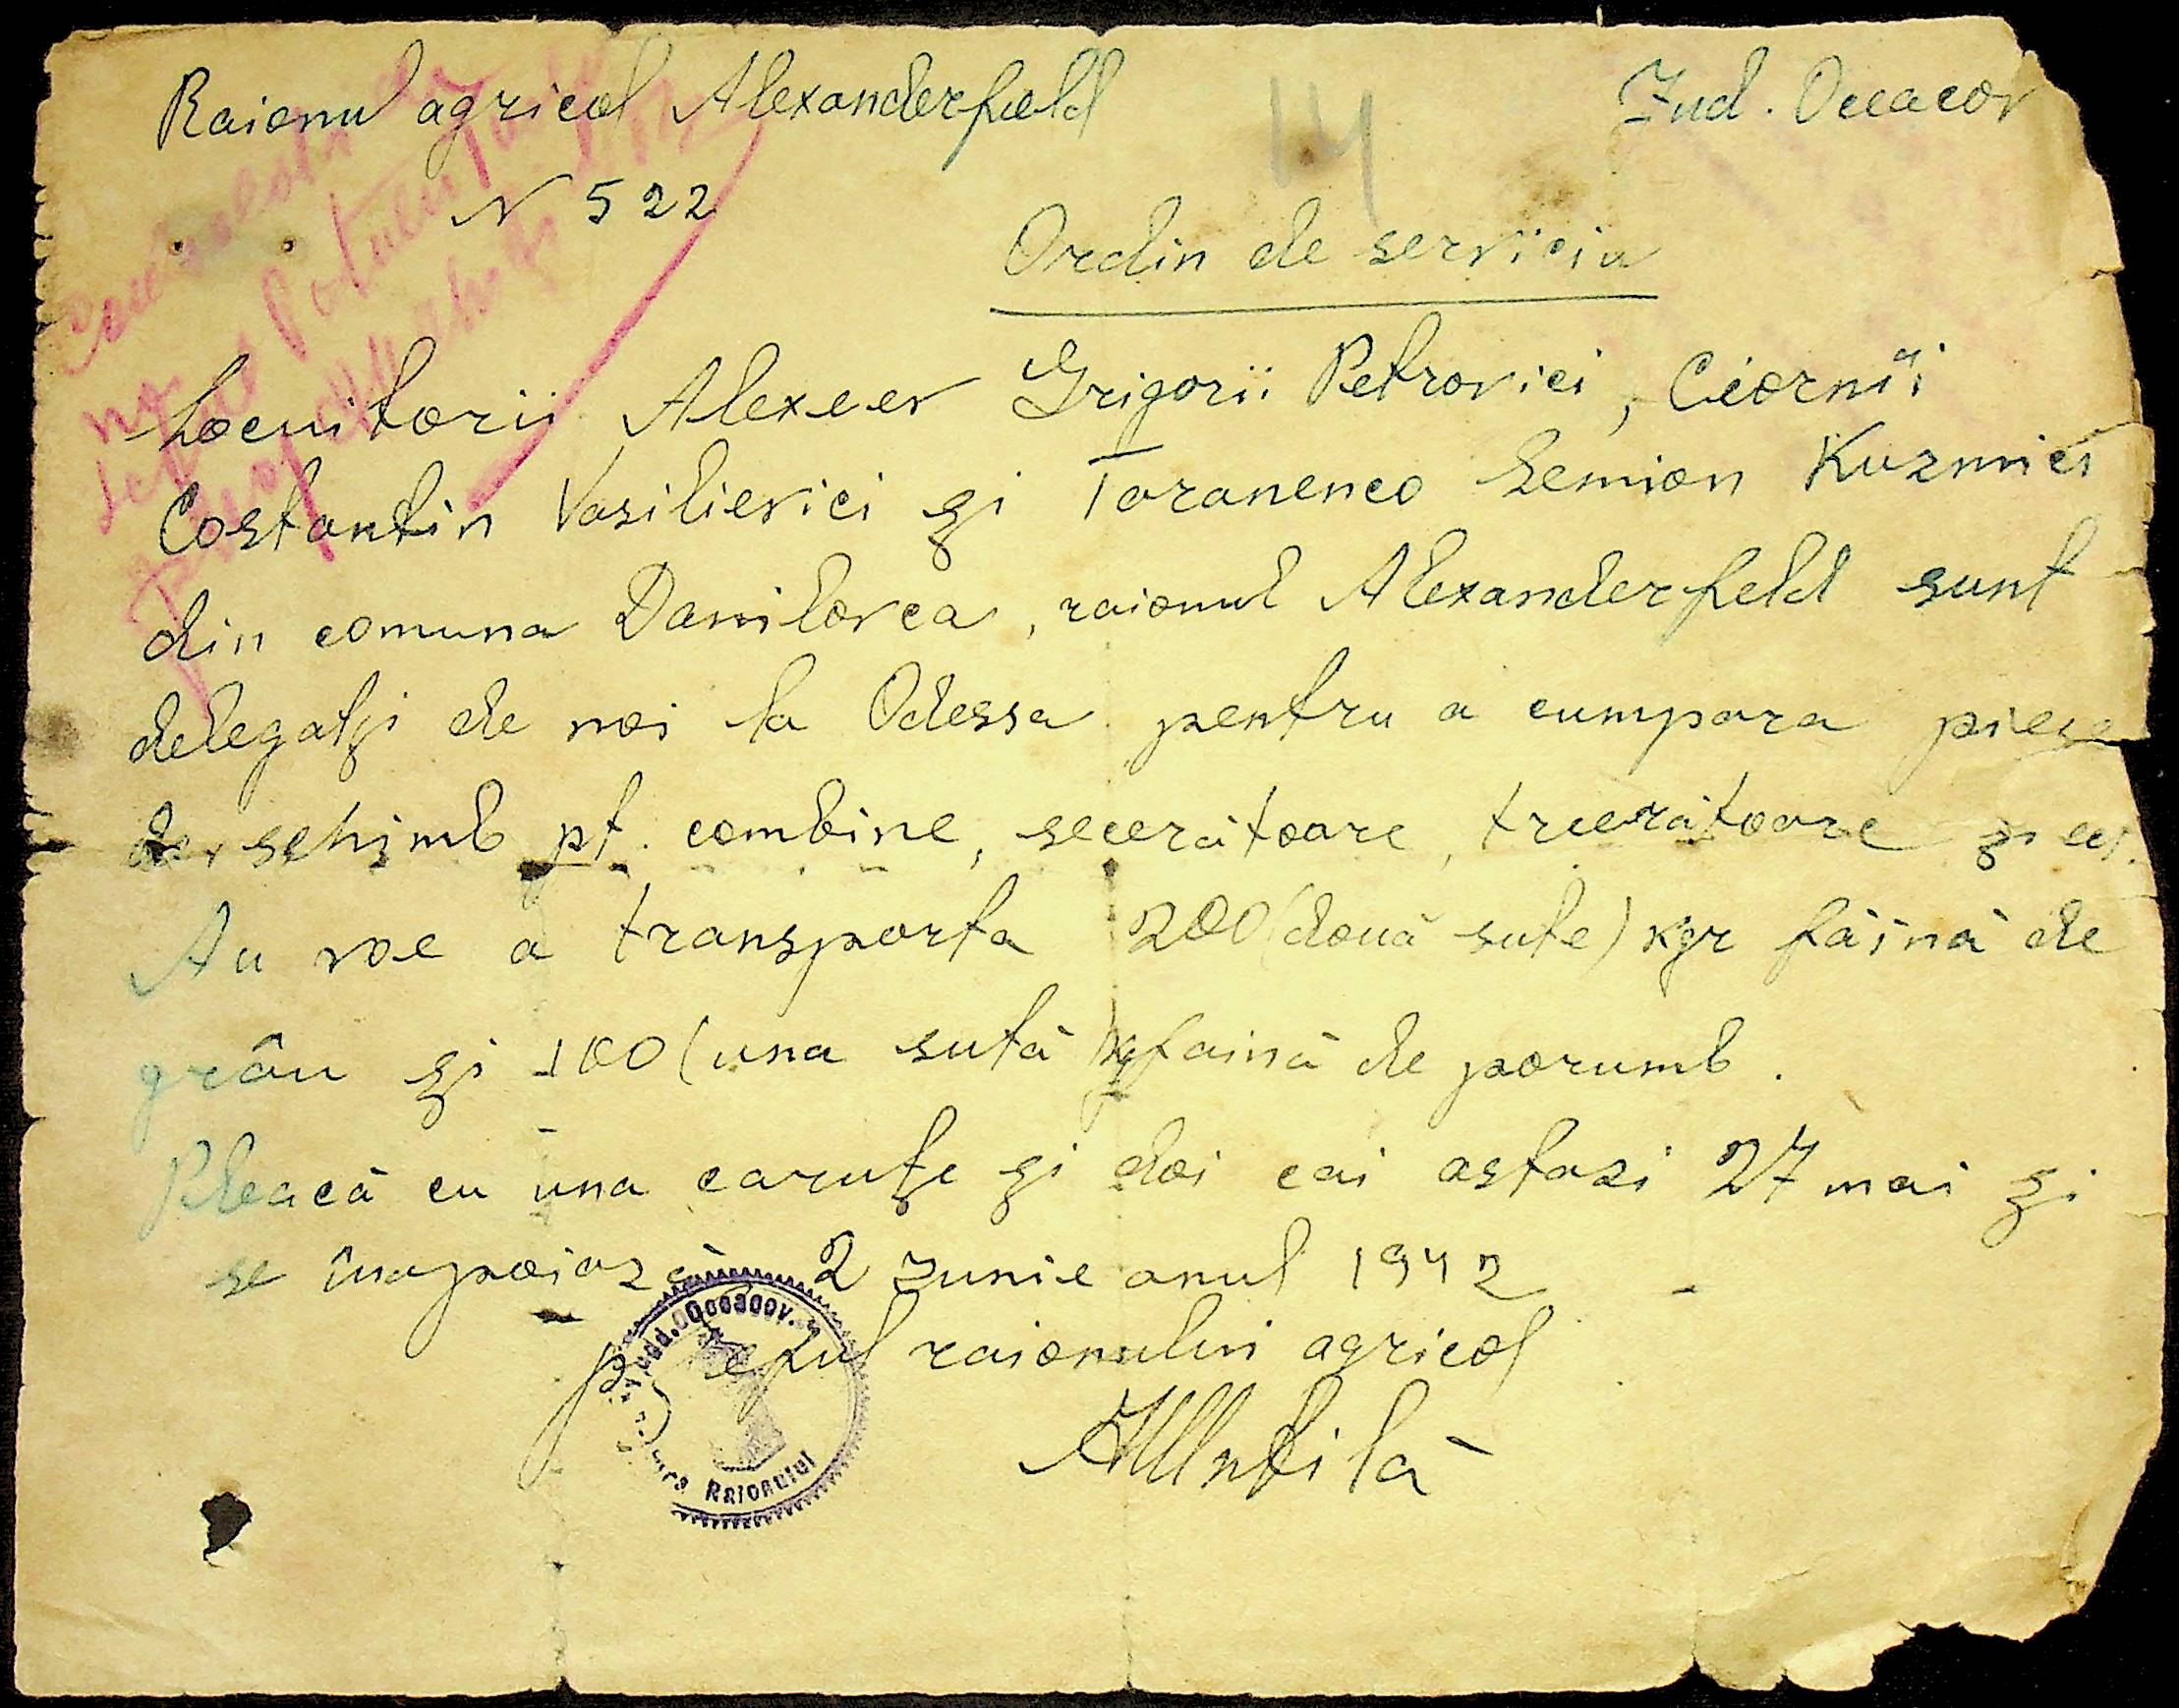 Raionul agricol Alexanderfeld
Jud. Oceacov
14
N 522
Ordin de serviciu
Locuitorii Alexeev Grigorii Petrovici, Ciornîi
Costantin Vasilievici și Taranenco Semion Kuzmici
din comuna Danilovca, raionul Alexanderfeld sunt
delegatși de noi la Odessa pentru a cumpara piese
de schimb pt. combine, secerătoare, treerătoare și
Au voe a transporta 200 (două sute) kgr făină de
grâu și 100 (una sută) kg faină de porumb.
Pleacă cu una caruțe și doi cai astazi 27 mai și
se înapoiază 2 Iunie anul 1942
p. Șeful raionului agricol
Raionului